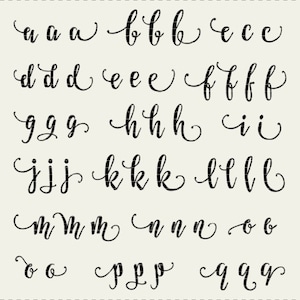 a a a b b b c c c
d d d e e e f f f f
g g g h h h i i
j j j k k k l l l l
m m m n n n o o
o o p p p q q q